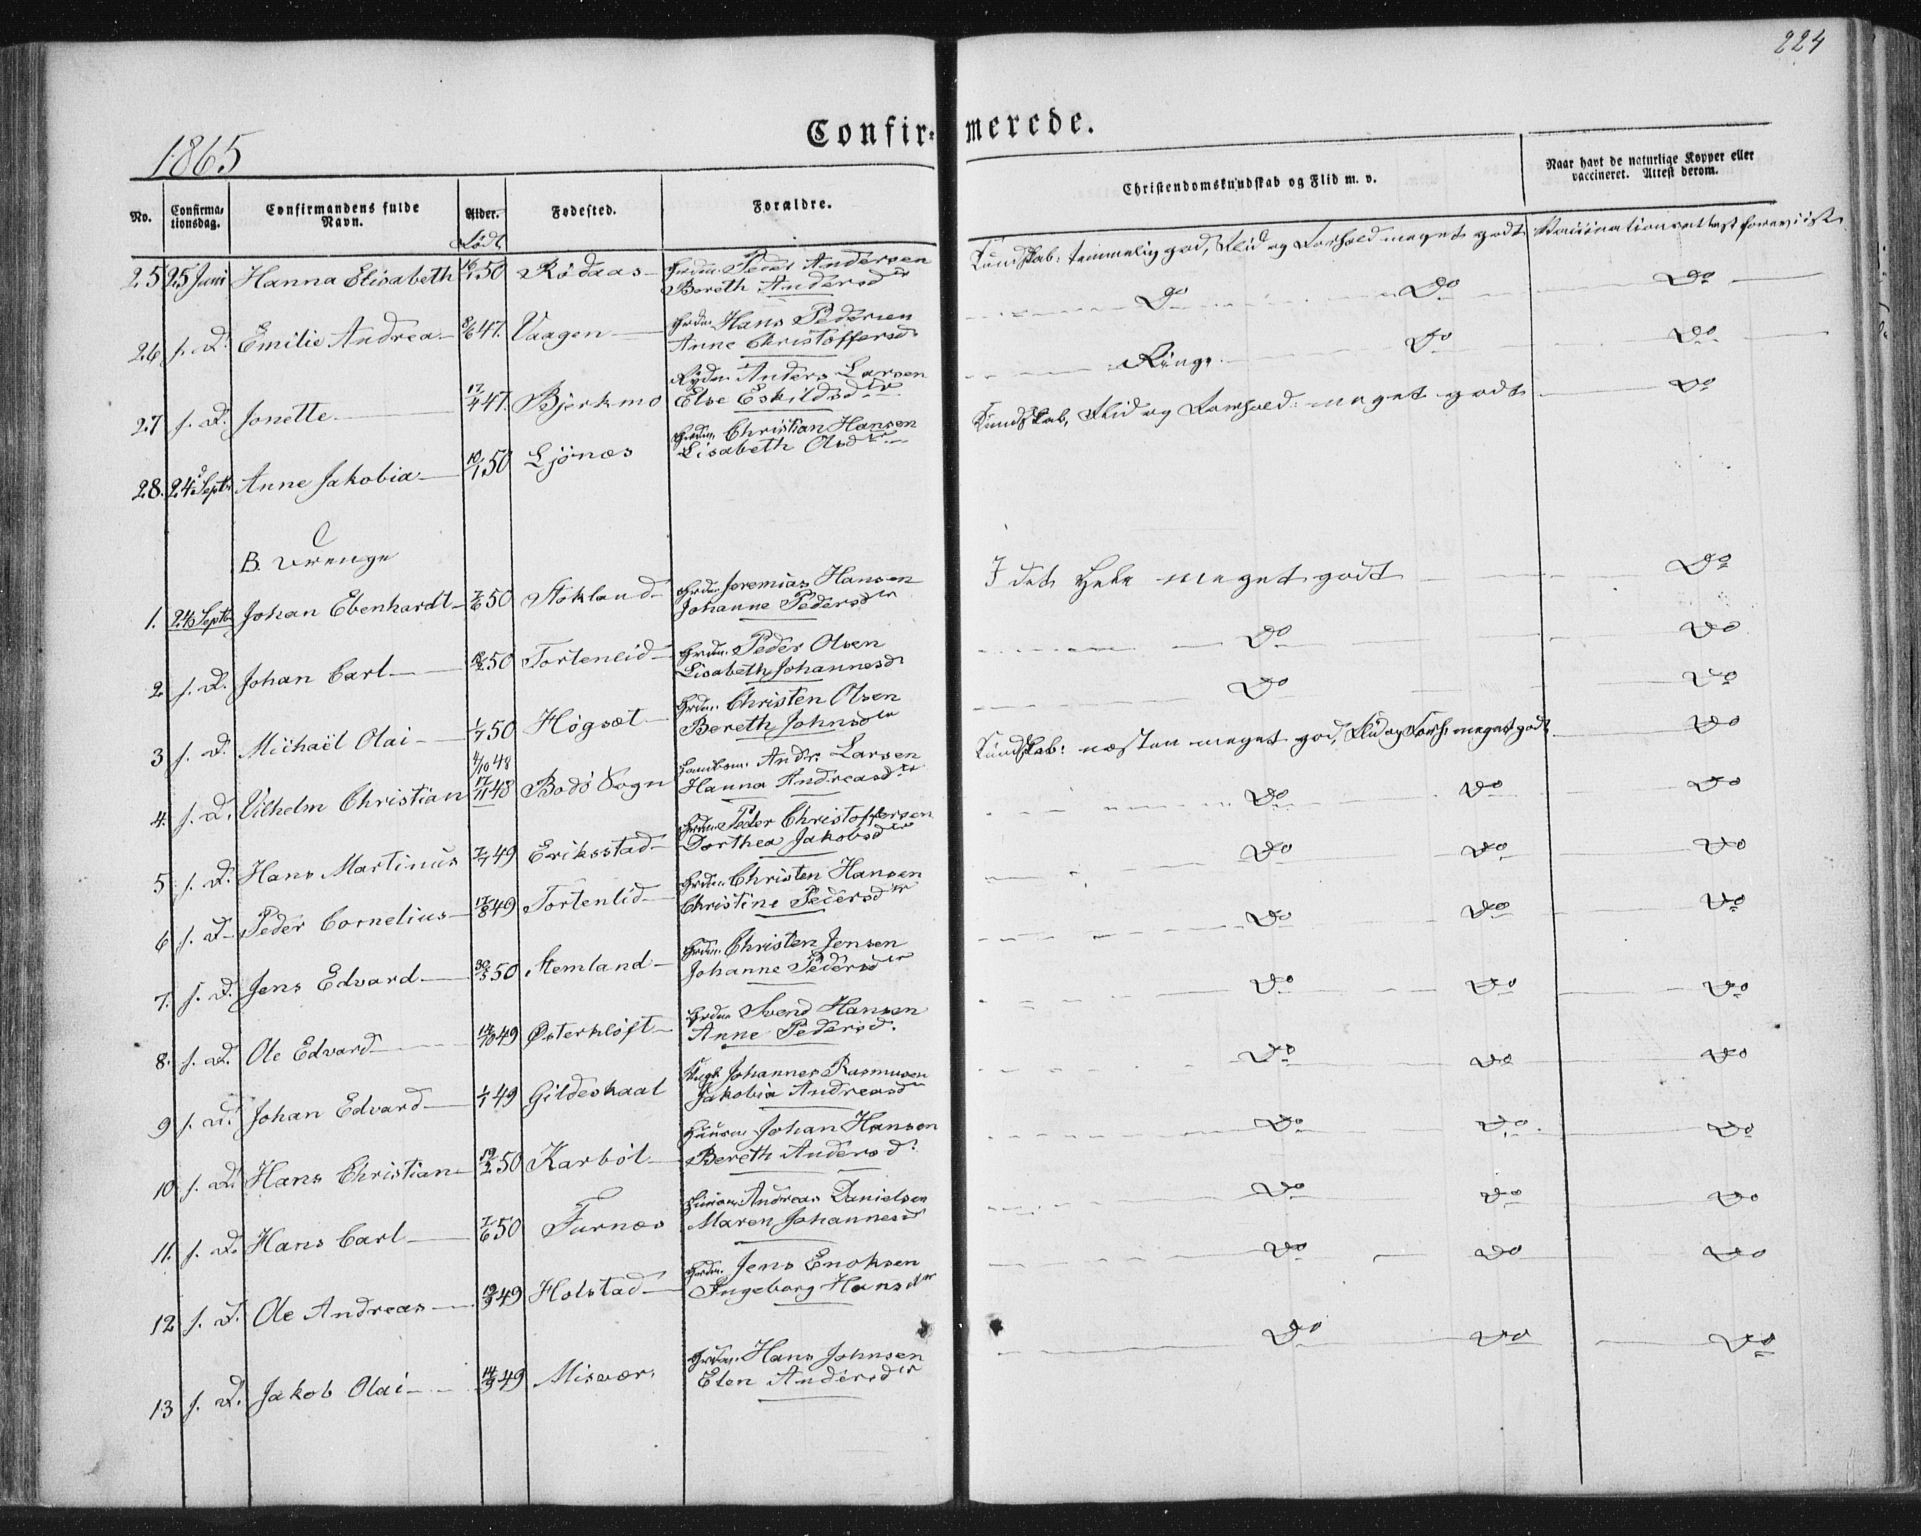 224
Confir- merede.
1865
No. Confirmationsdag. Confirmandens fulde Navn. Alder. Fødested. Forældre. Christendomskundskab og Flid m. v. Naar havt de naturlige Kopper eller vaccineret. Attest derom.
Født
25 25 Juni Hanna Elisabeth 50 Rødaas Grdm. Peder Andersen Kundskab: temmelig god, Flid og Forhold meget godt Vaccinationsattest foreviist
Bereth Andersdr
26 s. D. Emilie Andrea 8/6 47. Vaagen Grdm. Hans Pedersen Do Do Do
Anne Christoffersd.
27 s. D. Jonette 17/4 47. Bjerkmo Rydn. Anders Larsen Ringe. Do Do
Else Eskildsdr
28. 24d Septr Anne Jakobia 10/1 50 Ljönæs Grdm. Christian Hansen Kundskab, Flid og Forhold: meget godt Do
Lisabeth Olsdr
B. Drenge
1. 24d Septbr Johan Ebenhardt 2/6 50 Stokland Grdm. Jeremias Hansen I det Hele meget godt Do
Johanne Pedersdr
2 s. D. Johan Carl 50 Tortenlid Grdm. Peder Olsen Do Do
Lisabeth Johannesd.
3 s. D. Michaël Olai 1/7 50 Høgsæt Grdm. Christen Olsen Do Do
Bereth Johnsdr
4/10 48
4. s. D. Vilhelm Christian 17/11 48 Bodö Sogn Andr. Larsen Kundskab: næsten meget god, Flid og Forh. meget godt Do
Hanna Andreasdr
5 s. D. Hans Martinus 2/7 49 Eriksstad Grdm. Peder Christoffersen Do Do Do
Dorthea Jakobsdr
6 s. D. Peder Cornelius 17/8 49 Tortenlid Grdm. Christen Hansen Do Do Do
Christine Pedersdr
7. s. D. Jens Edvard 30/5 50 Stemland Grdm. Christen Jensen Do Do Do
Johanne Pedersdr
8. s. D. Ole Edvard 14/10 49 Østerkløft Grdm. Svend Hansen Do Do Do
Anne Pedersd.
9 s. D. Johan Edvard 1/1 49 Gildeskaal Johannes Rasmusen Do Do Do
Jakobia Andreasd
10 s. D. Hans Christian 19/2 50 Karbøl Huusm. Johan Hansen Do Do Do
Bereth Andersd.
11. s. D. Hans Carl 7/6 50 Furnæs Andreas Danielsen Do Do Do
Maren Johannesd
12 s. D. Ole Andreas 49 Holstad Grdm. Jens Enoksen Do Do Do
Ingeborg Hansdr
13 s. D. Jakob Olai 14/9 49 Misvær Grdm. Hans Johnsen Do Do Do
Elen Andersdr